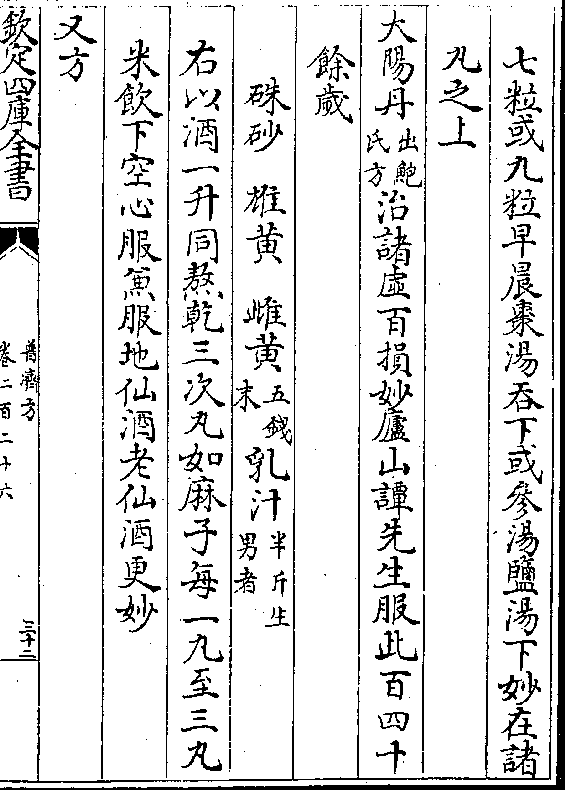 七粒或九粒早晨棗湯吞下或參湯鹽湯下妙在諸
丸之上
大陽丹出鮑氏方治諸虛百損妙廬山譚先生服此百四十
餘歲
硃砂　雄黃　雌黃五錢末乳汁半斤生男者
右以酒一升同熬乾三次丸如麻子每一九至三丸
米飲下空心服兼服地仙酒老仙酒更妙
又方
欽定四庫全書
普濟方
卷二百二十六
三十二